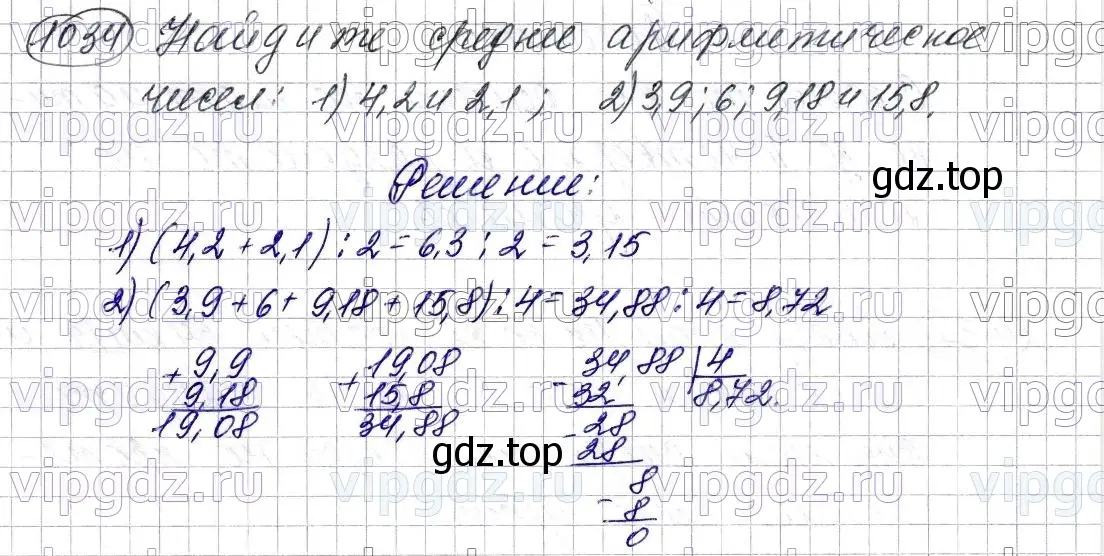 1034 Найдите среднее арифметическое
чисел: 1) 4,2 и 2,1; 2) 3,9; 6; 9,18 и 15,8.
Решение:
gdz.top
1) (4,2 + 2,1) : 2 = 6,3 : 2 = 3,15
2) (3,9 + 6 + 9,18 + 15,8) : 4 = 34,88 : 4 = 8,72
+ 9,9 + 19,08 - 34,88 | 4
9,18 15,8 32 8,72.
19,08 34,88 - 28
28
gdz.top
8
- 8
0
vipgdz.ru